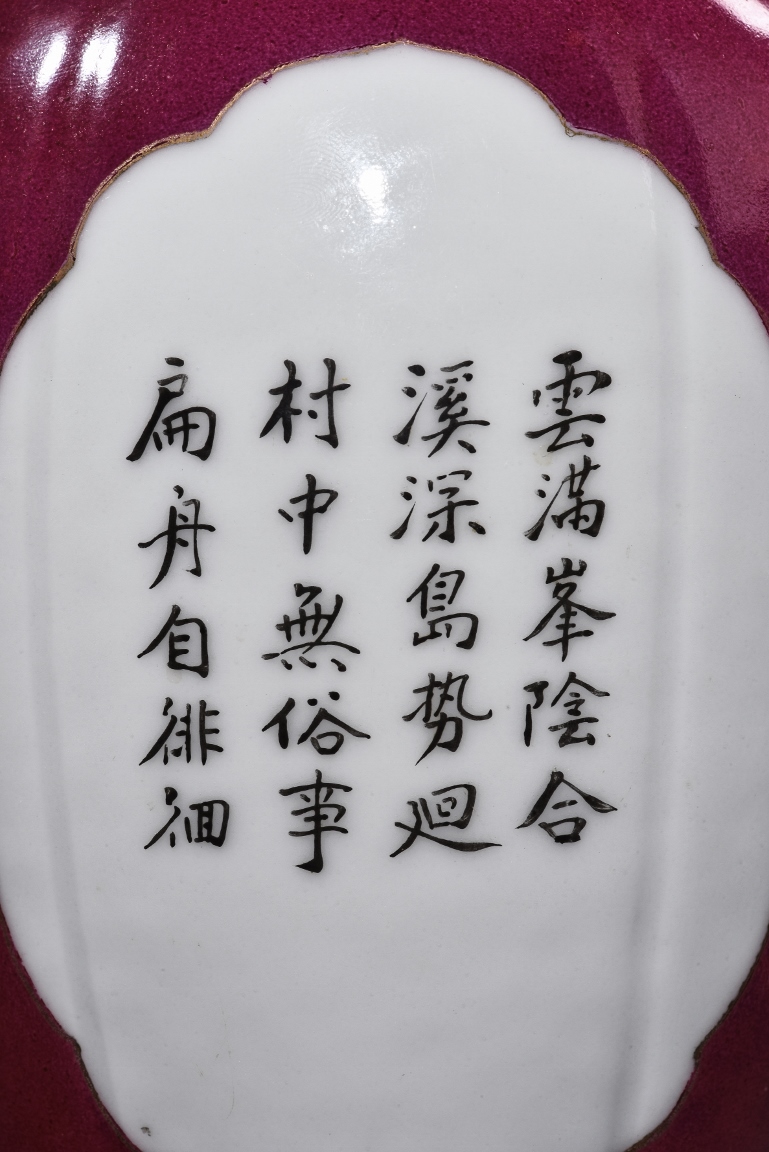 雲满峯陰合
溪深島势廻
村中無俗事
扁舟自徘徊